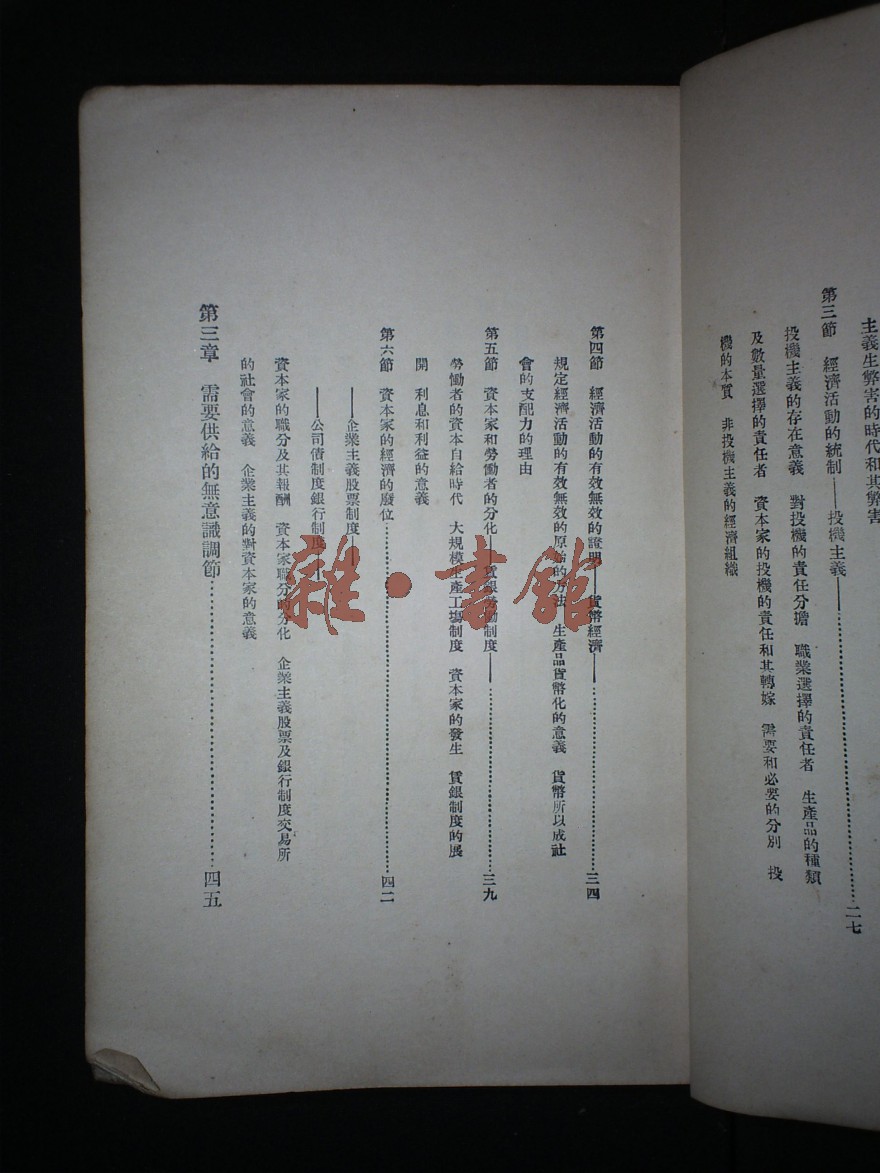 主義生弊害的時代和其弊害
第三節　經濟活動的統制——投機主義——……二七
投機主義的存在意義　對投機的責任分擔　職業選擇的責任者　生產品的種類
及數量選擇的責任者　資本家的投機的責任和其轉嫁　需要和必要的分別　投
機的本質　非投機主義的經濟組織
第四節　經濟活動的有效無效的證明——貨幣經濟——……三四
規定經濟活動的有效無效的原始的方法　生產品貨幣化的意義　貨幣所以成社
會的支配力的理由
第五節　資本家和勞働者的分化——賃銀勞働制度——……三九
勞働者的資本自給時代　大規模生產工場制度　資本家的發生　賃銀制度的展
開　利息和利益的意義
第六節　資本家的經濟的廢位……四二
——企業主義股票制度——
——公司債制度銀行制度——
資本家的職分及其報酬　資本家職分的分化　企業主義股票及銀行制度交易所
的社會的意義　企業主義的對資本家的意義
第三章　需要供給的無意識調節……四五
雜·書館